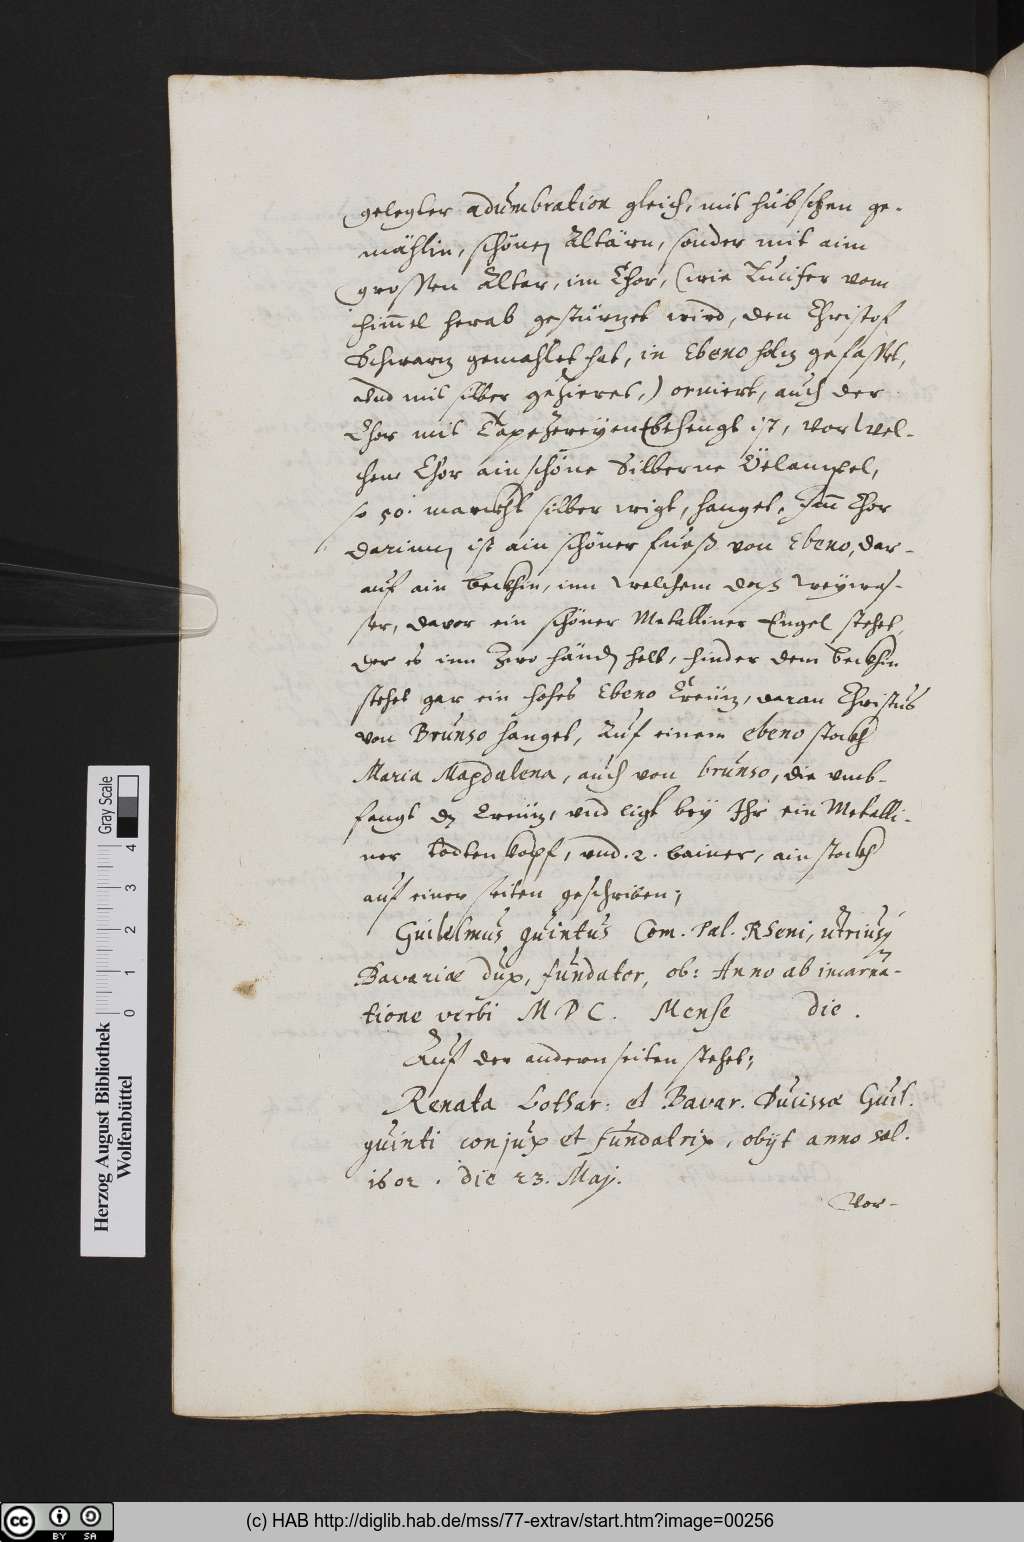 gelegter adumbration gleich, mit hübschen ge-
mählin, schönen Altärn, sonder mit aim
grossen Altar, im Chor, (wie Lucifer vom
himmel herab gestürzet wird, den Christof
Schwarz gemahlet hat, in Ebeno holtz gefasset,
vnd mit silber gezieret,) orniert, auch der
Chor mit Tapezereyen behengt ist, vor wel-
chem Chor ain schöne Silberne Ölampel,
so 50. marckht silber wigt, hanget, Im Chor
darinnen ist ain schöner fueß von Ebeno, dar-
auf ain beckhin, inn welchem daß Weywas-
ser, davor ein schöner Metalliner Engel stehet,
der es inn zwo händen helt, hinder dem beckhin
stehet gar ein hohes Ebeno Creütz, daran Christus
von Brunso hanget, Auf einem ebeno stockh
Maria Magdalena, auch von brunso, die vmb-
fangt dz Creütz, vnd ligt bey Ihr ein Metalli-
ner todten kopf, vnd .2. bainer, ain stockh
auf einer seiten geschriben;
Guilelmus quintus Com. Pal. Rheni, utriusq
Bavariæ dux, fundator, ob: Anno ab incarna-
tione verbi M D C. Mense die .
Auf der andern seiten stehet;
Renata Lothar: et Bavar. Ducissæ Guil.
quinti conjux et fundatrix, obijt anno sal.
1602 . die 23. Maj.
Vor-
Herzog August Bibliothek
Wolfenbüttel
0 1 2 3 4
Gray Scale
cc BY SA
(c) HAB http://diglib.hab.de/mss/77-extrav/start.htm?image=00256